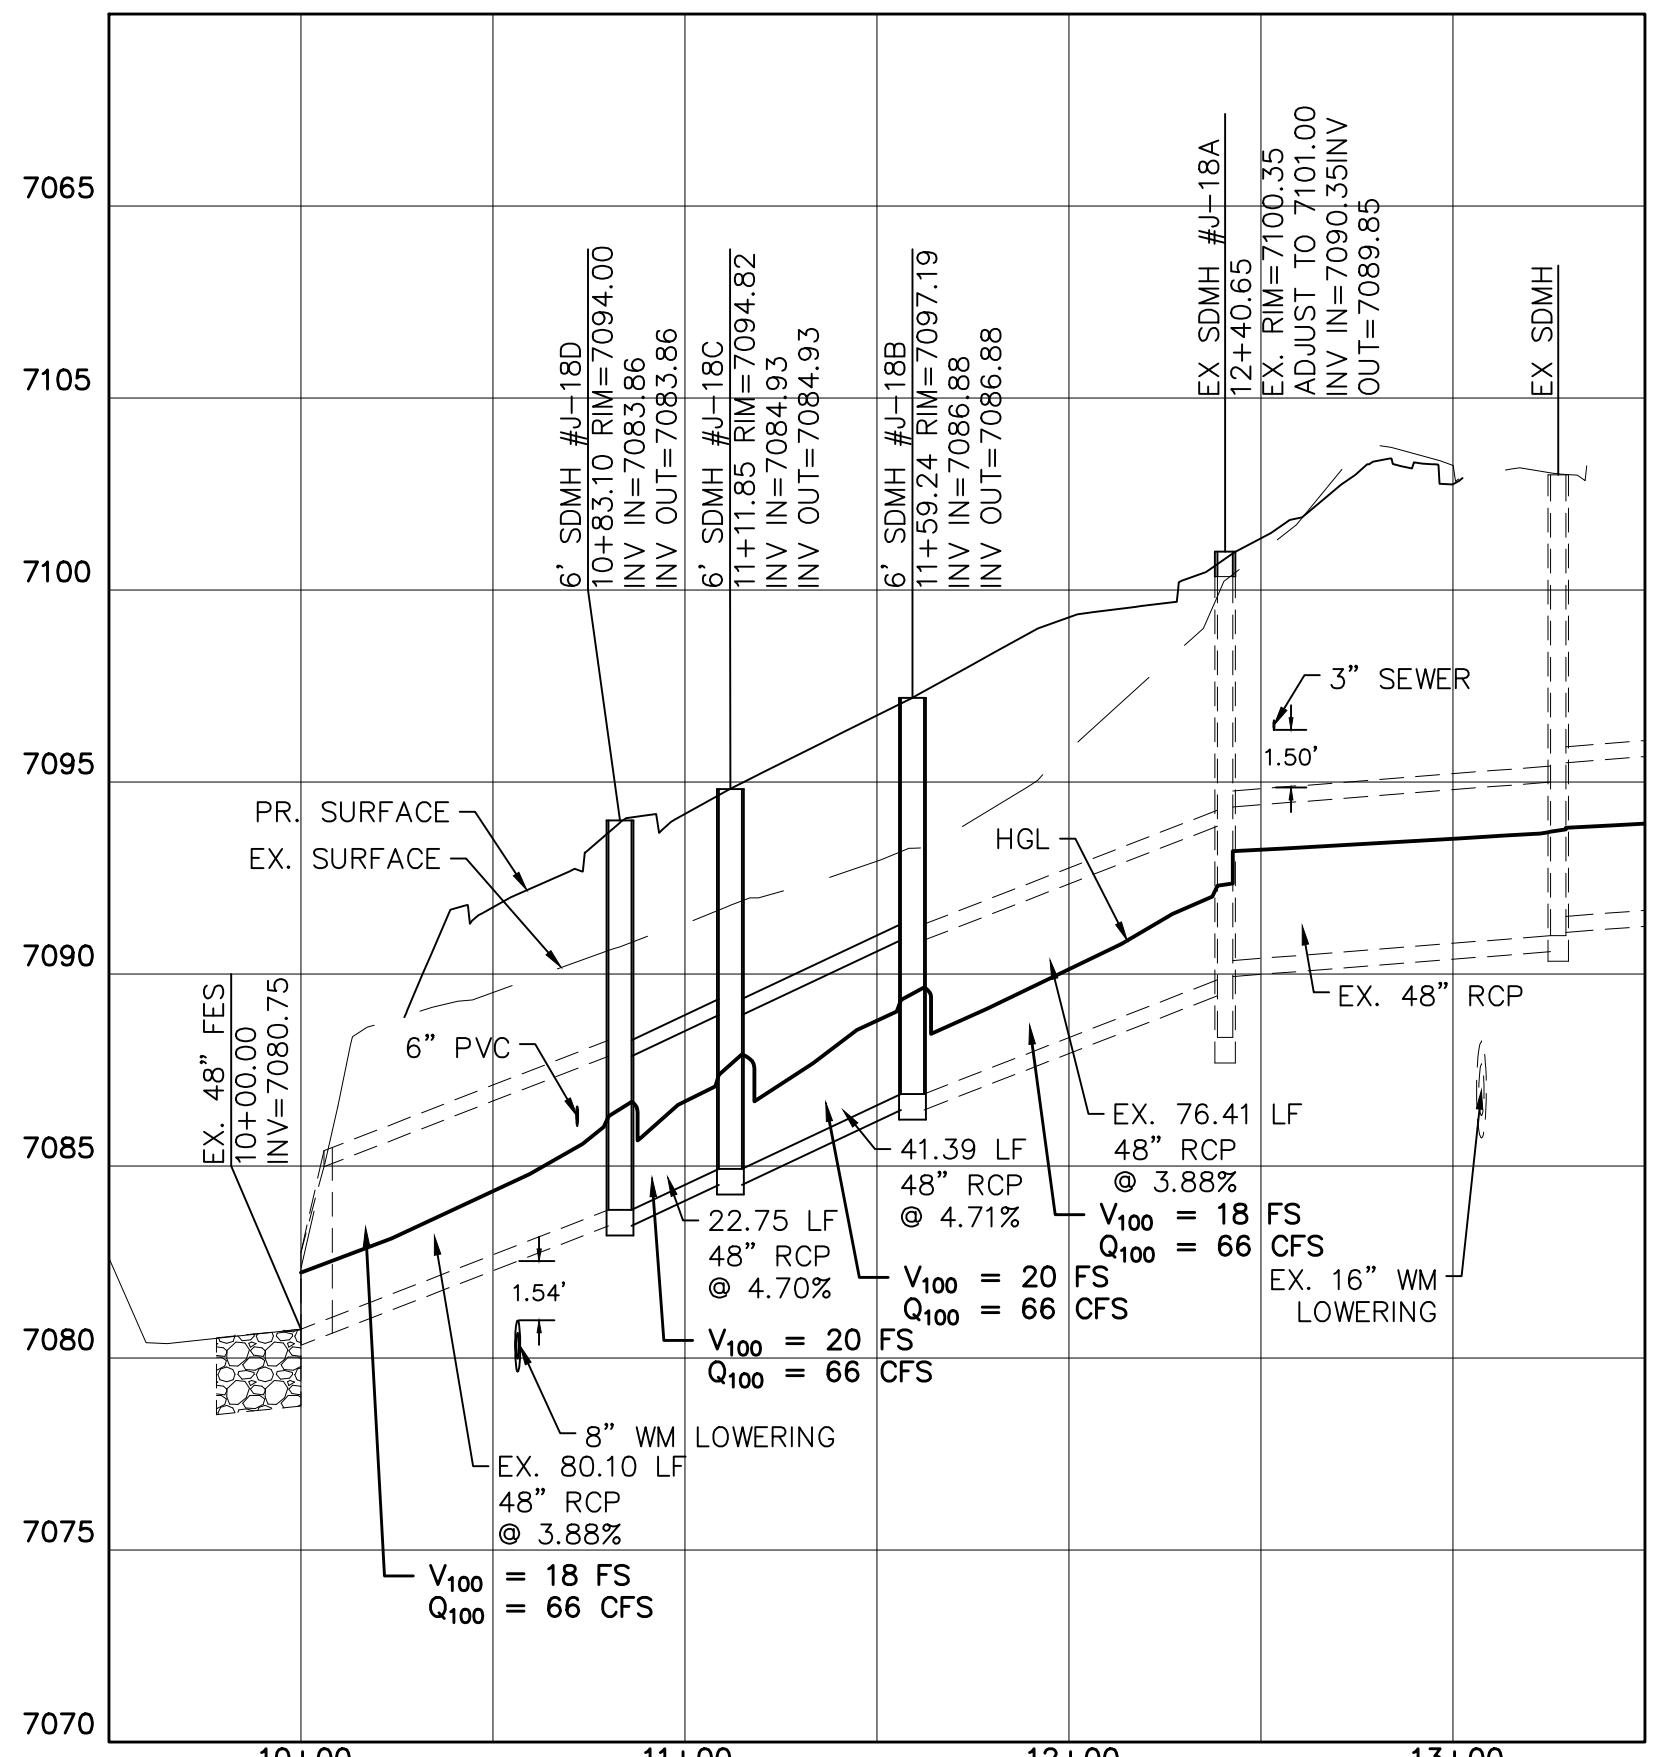 7065
7105
7100
7095
7090
7085
7080
7075
7070
EX. 48” FES
10+00.00
INV=7080.75
6’ SDMH #J-18D
10+83.10 RIM=7094.00
INV IN=7083.86
INV OUT=7083.86
6’ SDMH #J-18C
11+11.85 RIM=7094.82
INV IN=7084.93
INV OUT=7084.93
6’ SDMH #J-18B
11+59.24 RIM=7097.19
INV IN=7086.88
INV OUT=7086.88
EX SDMH #J-18A
12+40.65
EX. RIM=7100.35
ADJUST TO 7101.00
INV IN=7090.35INV
OUT=7089.85
EX SDMH
3” SEWER
1.50’
PR. SURFACE
EX. SURFACE
HGL
6” PVC
EX. 48” RCP
EX. 76.41 LF
48” RCP
@ 3.88%
V100 = 18 FS
Q100 = 66 CFS
41.39 LF
48” RCP
@ 4.71%
V100 = 20 FS
Q100 = 66 CFS
22.75 LF
48” RCP
@ 4.70%
V100 = 20 FS
Q100 = 66 CFS
EX. 16” WM
LOWERING
1.54’
8” WM LOWERING
EX. 80.10 LF
48” RCP
@ 3.88%
V100 = 18 FS
Q100 = 66 CFS
10+00
11+00
12+00
13+00